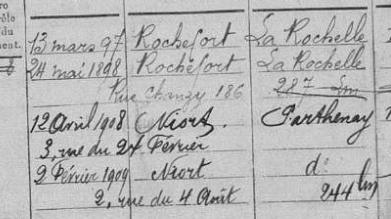 ro
ôle
du
ment.
13 mars 97 Rochefort La Rochelle
24 mai 1898 Rochefort La Rochelle
Rue Chanzy 186 287 km
12 Avril 1908 Niort. Parthenay
3, rue du 24 Février
2 Février 1909 Niort d°
2, rue du 4 Août 244 km